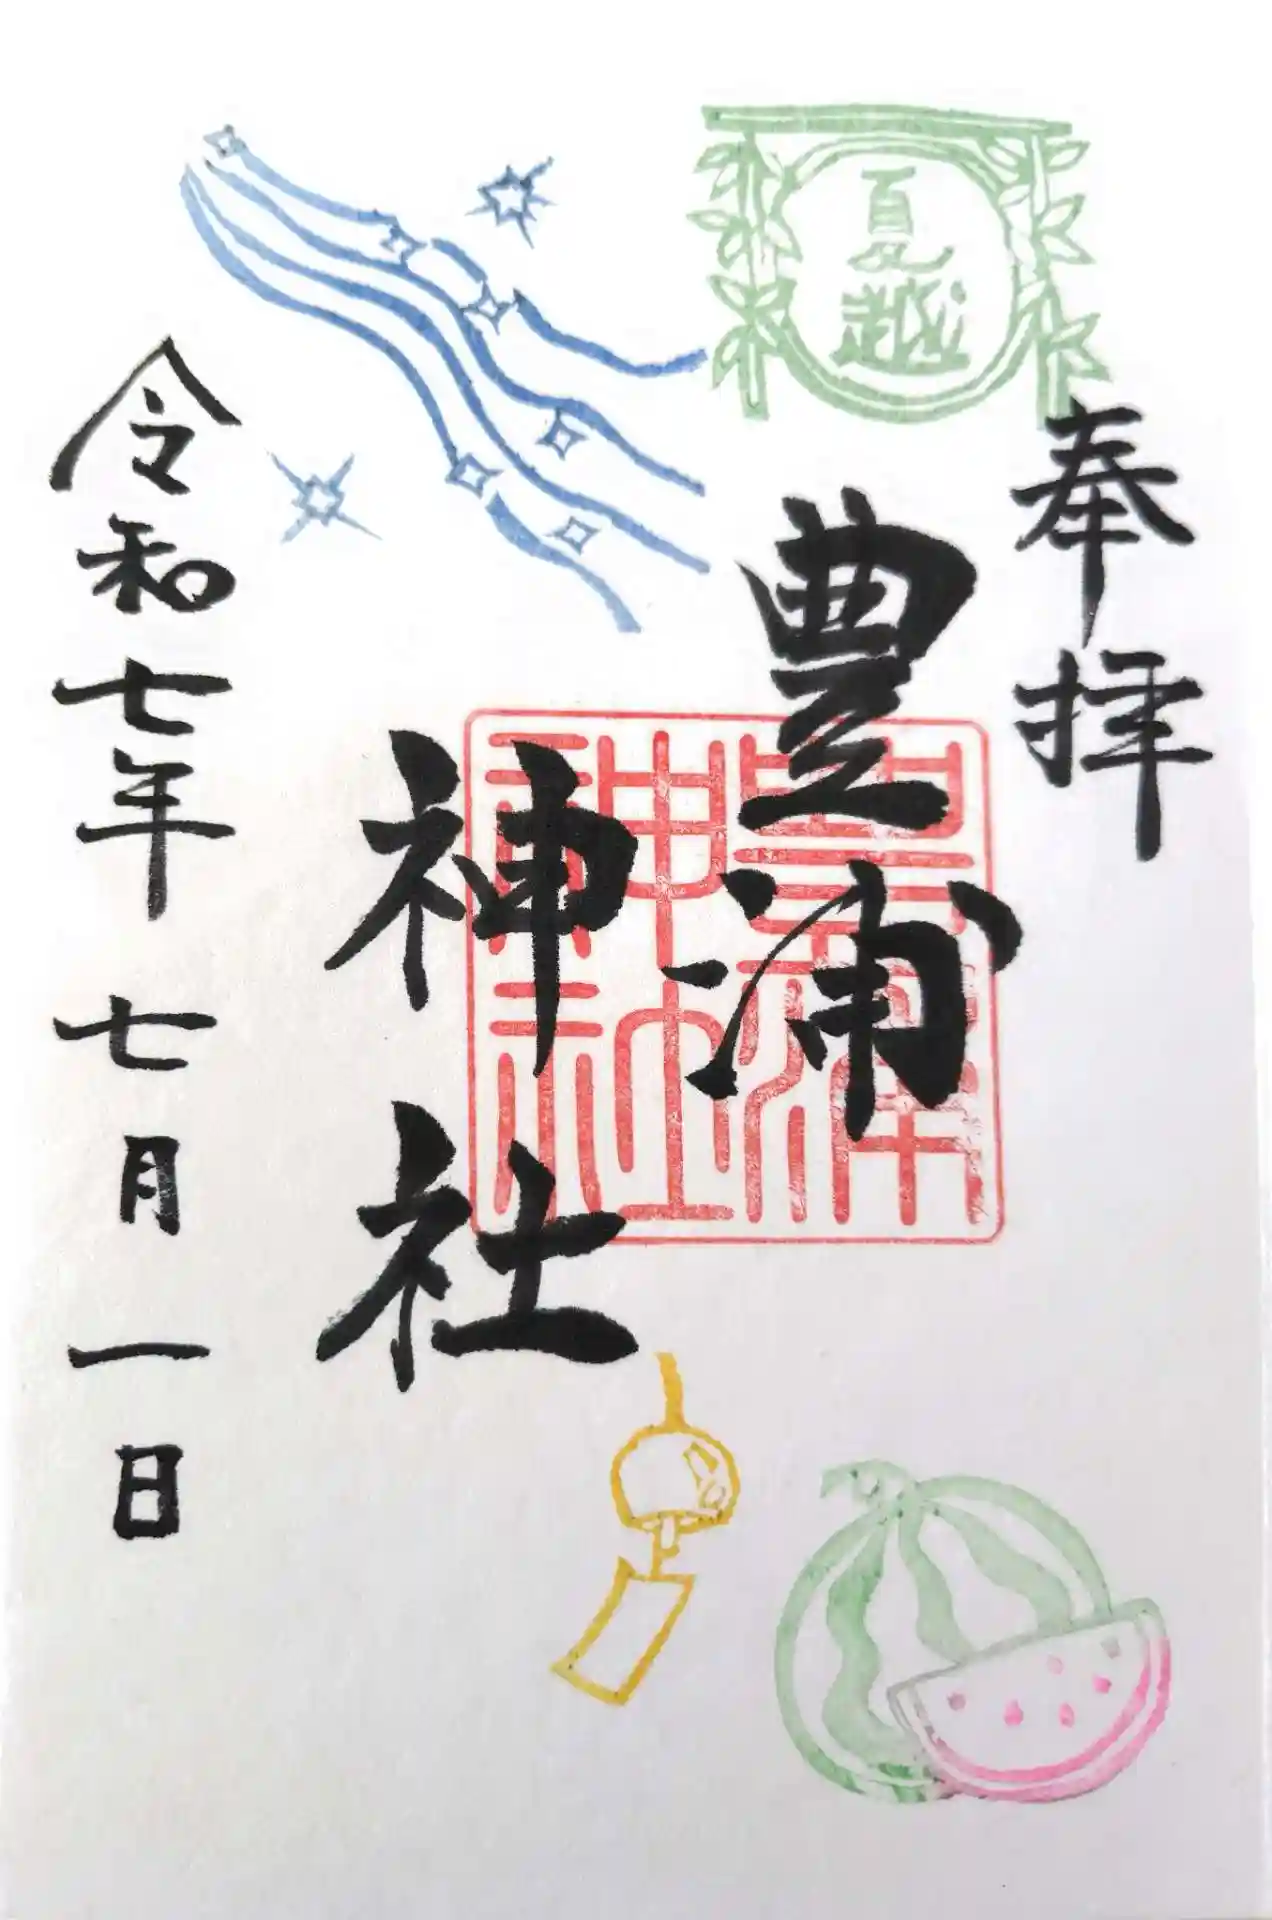 奉拝
夏越
豊浦
神社
豊浦
神社
神社
令和七年七月一日